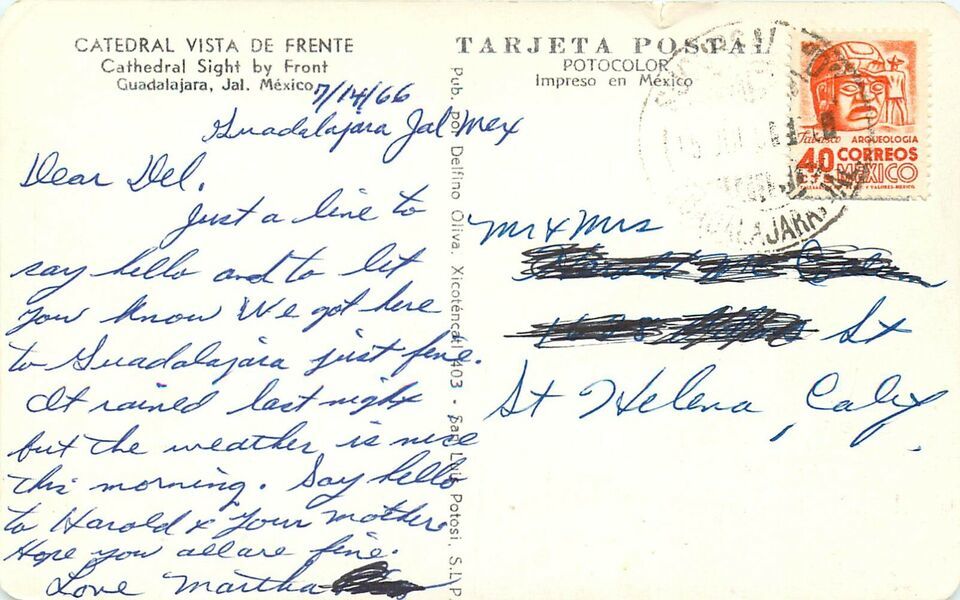 CATEDRAL VISTA DE FRENTE
Cathedral Sight by Front
Guadalajara, Jal. México
7/14/66
Guadalajara Jal Mex
Dear Del.
Just a line to
say hello and to let
you know We got here
to Guadalajara just fine.
It rained last night
but the weather is nice
this morning. Say hello
to Harold & your mother
Hope you all are fine.
Love Martha
Pub. por Delfino Oliva. Xicoténcatl 403 - San Luis Potosi, S.L.P.
TARJETA POSTAL
POTOCOLOR
Impreso en México
Tabasco ARQUEOLOGIA
40 CORREOS
CTS MEXICO
Mr & Mrs
St
St Helena, Calif